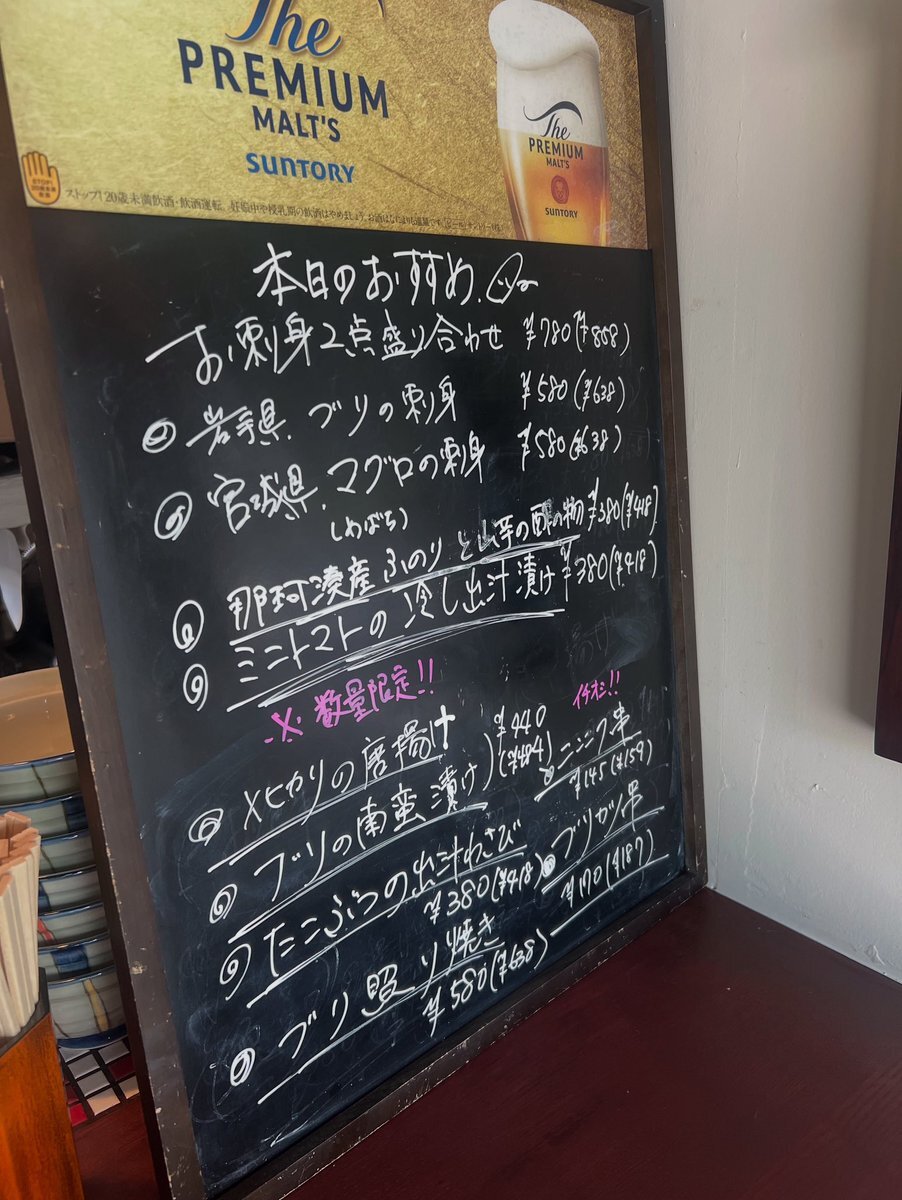 The
PREMIUM
MALT'S
SUNTORY
The
PREMIUM
MALT'S
SUNTORY
STOP!
ストップ!20歳未満飲酒・飲酒運転。妊娠中や授乳期の飲酒はやめましょう。
本日のおすすめ.
お刺身2点盛り合わせ ¥780(¥858)
岩手県.ブリの刺身 ¥580(¥638)
宮城県.マグロの刺身 ¥580(¥638)
(わばち)
那珂湊産ふのりと山芋の酢の物 ¥380(¥418)
ミニトマトの冷し出汁漬け ¥380(¥418)
※数量限定!!
イチオシ!!
メヒカリの唐揚げ
ブリの南蛮漬け
¥440
(¥484)
ニンニク串
¥145(¥159)
たこぶつの出汁わさび
¥380(¥418)
ブリカツ串
¥170(¥187)
ブリ照り焼き
¥580(¥638)